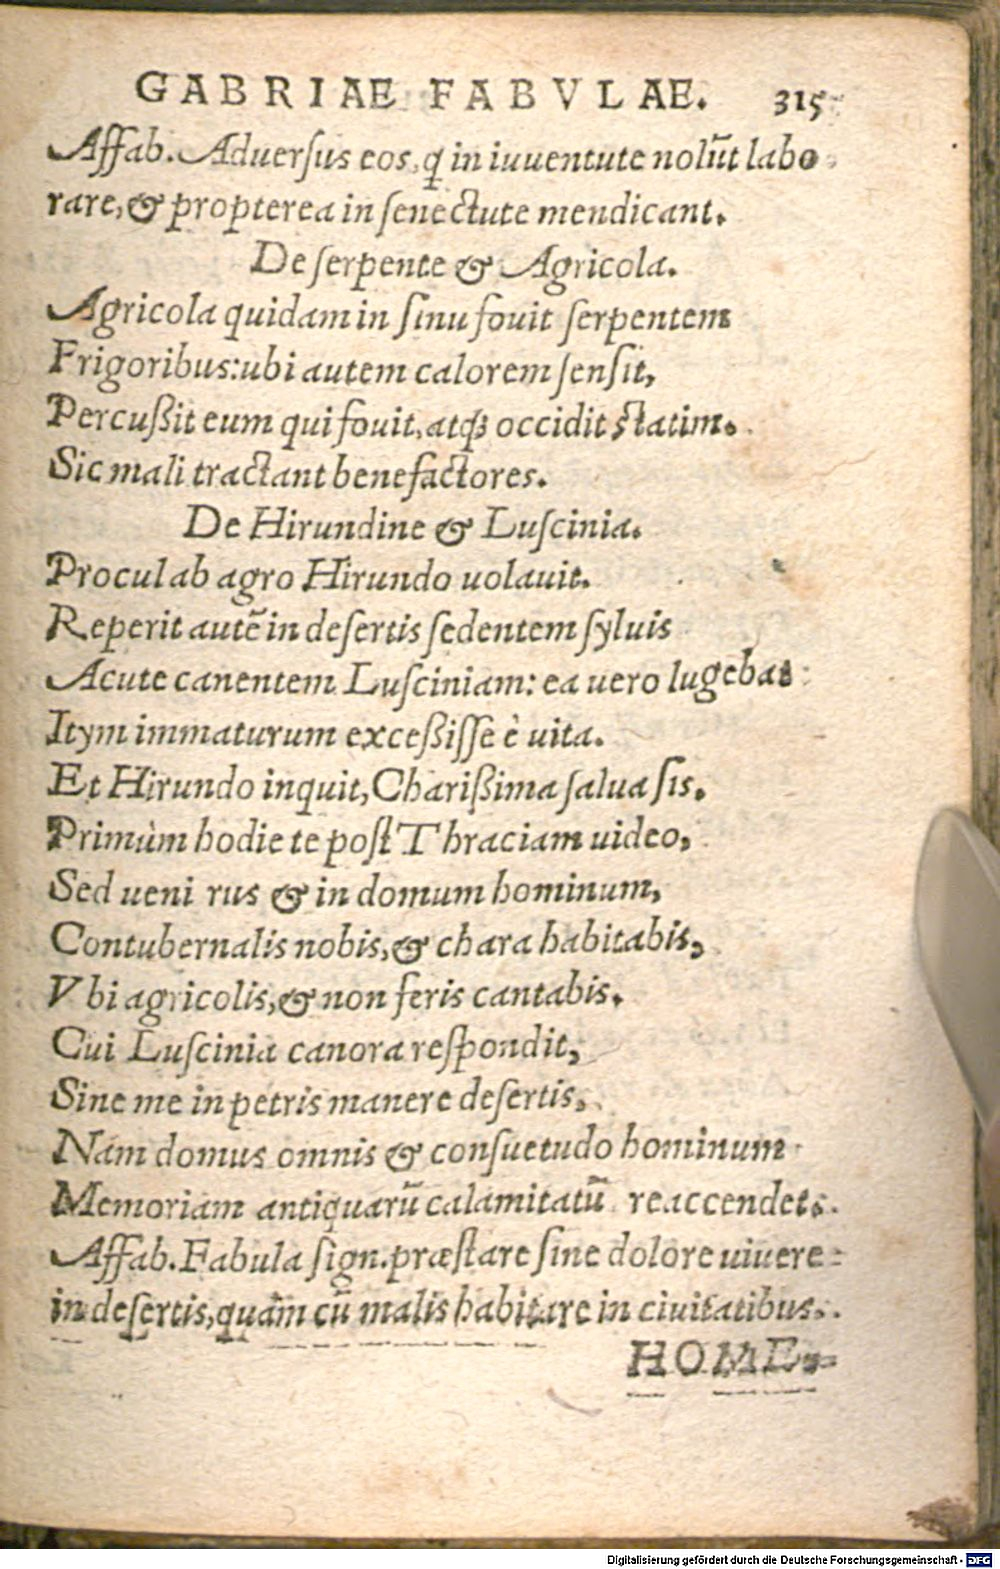 GABRIAE FABVLAE. 315
Affab. Aduersus eos, q̃ in iuuentute nolũt labo-
rare, & propterea in senectute mendicant.
De serpente & Agricola.
Agricola quidam in sinu fouit serpentem
Frigoribus: ubi autem calorem sensit,
Percußit eum qui fouit, atq; occidit statim.
Sic mali tractant benefactores.
De Hirundine & Luscinia.
Procul ab agro Hirundo uolauit.
Reperit autẽ in desertis sedentem syluis
Acute canentem Lusciniam: ea uero lugebat
Itym immaturum exceßisse è uita.
Et Hirundo inquit, Charißima salua sis.
Primùm hodie te post Thraciam uideo,
Sed ueni rus & in domum hominum,
Contubernalis nobis, & chara habitabis,
Vbi agricolis, & non feris cantabis.
Cui Luscinia canora respondit,
Sine me in petris manere desertis,
Nam domus omnis & consuetudo hominum
Memoriam antiquarũ calamitatũ reaccendet.
Affab. Fabula sign. præstare sine dolore uiuere
in desertis, quàm cũ malis habitare in ciuitatibus.
HOME-
Digitalisierung gefördert durch die Deutsche Forschungsgemeinschaft - DFG